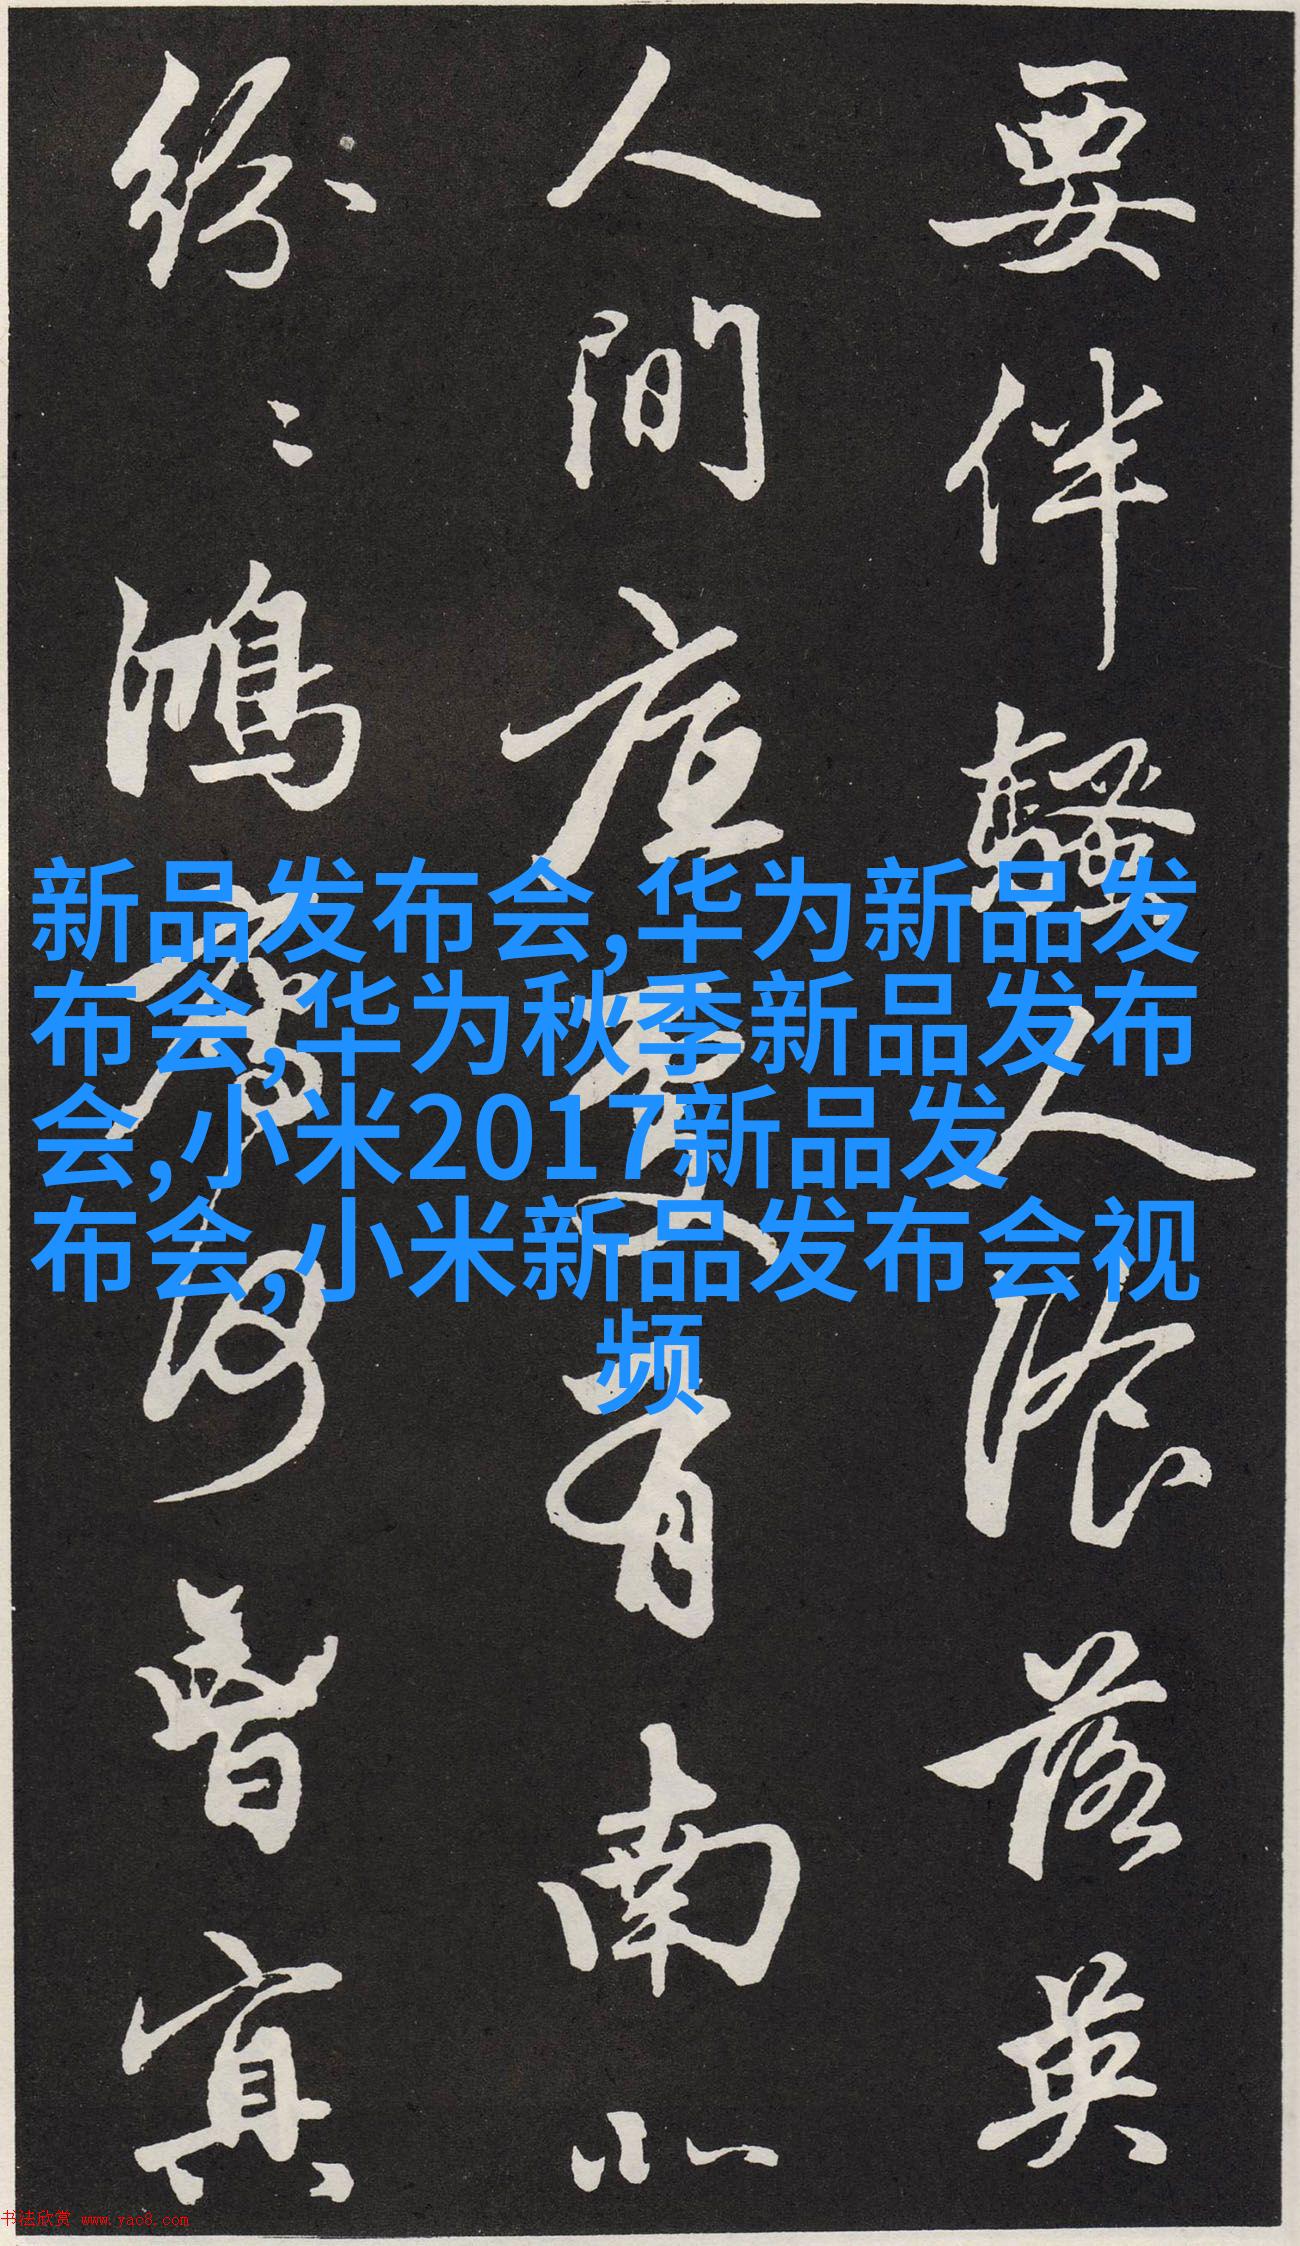 要伴騷人湌落英
人間底更有南北
紛〻鴻鴈何曾冥
新品发布会,华为新品发
布会,华为秋季新品发布
会,小米2017新品发
布会,小米新品发布会视
频
书法欣赏 www.yac8.com